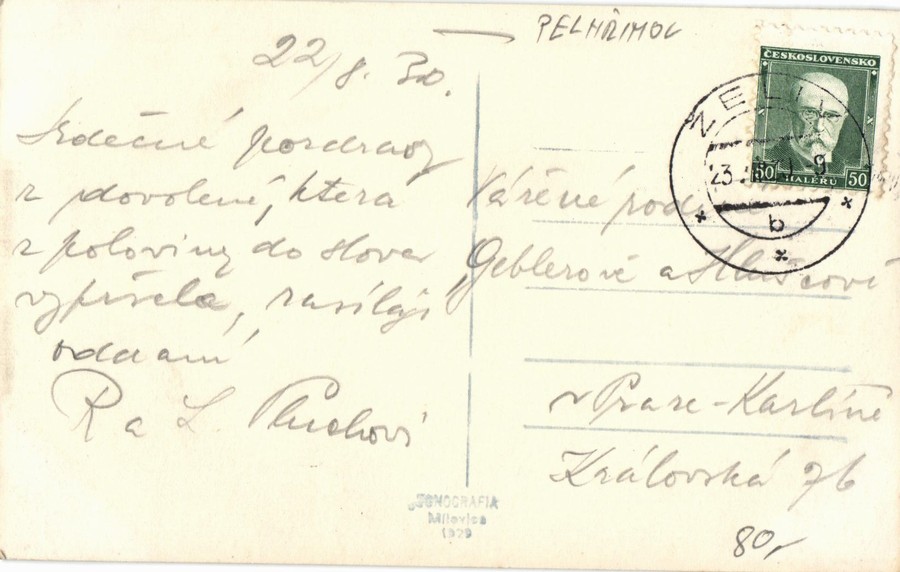 PELHŘIMOV
22/8. 30.
Srdečné pozdravy
z dovolené, která
z poloviny do slova
vypršela, zasílají
oddaní
R a L. Pluchovi
ČESKOSLOVENSKO
50 HALÉŘŮ 50
ŽELIV
23. 30 9
b
Vážené pod
Geblerové a Hluščovi
v Praze-Karlíně
Královská 76
FONOGRAFIA
Milovice
1929
80,-